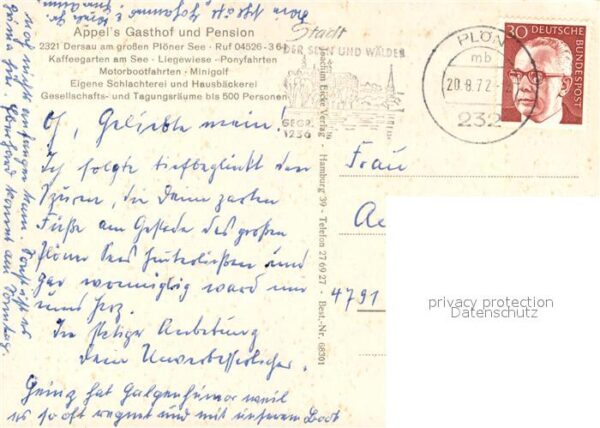 Appel's Gasthof und Pension
2321 Dersau am großen Plöner See · Ruf 04526-364
Kaffeegarten am See · Liegewiese · Ponyfahrten
Motorbootfahrten · Minigolf
Eigene Schlachterei und Hausbäckerei
Gesellschafts- und Tagungsräume bis 500 Personen
Oh, Geliebte mein!
Ich folgte tiefbeglückt den
Spuren, die Deine zarten
Füße am Gestade des großen
Plöner Sees hinterließen und
gar wonniglich ward mir
ums Herz.
In stetiger Anbetung
Dein Unverbesserlicher.
Heinz hat Galgenhumor weil
es so oft regnet und mit unserem Boot
noch nicht
Eberhard kommt am Sonntag.
Stadt
DER SEEN UND WÄLDER
GEGR.
1236
PLÖN
mb
20.8.72
232
30 DEUTSCHE
BUNDESPOST
Joachim Eicke Verlag · Hamburg 39 · Telefon 27 69 27 · Best.-Nr. 68301
Frau
4791
privacy protection
Datenschutz